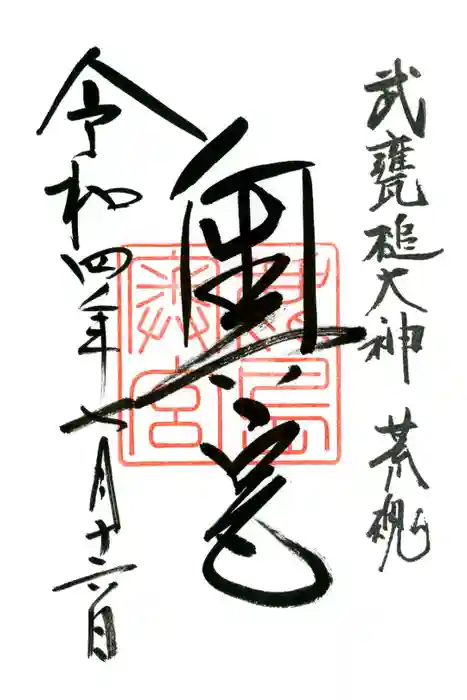 武甕槌大神 荒魂
奥宮
鹿島奥宮
令和四年七月十六日